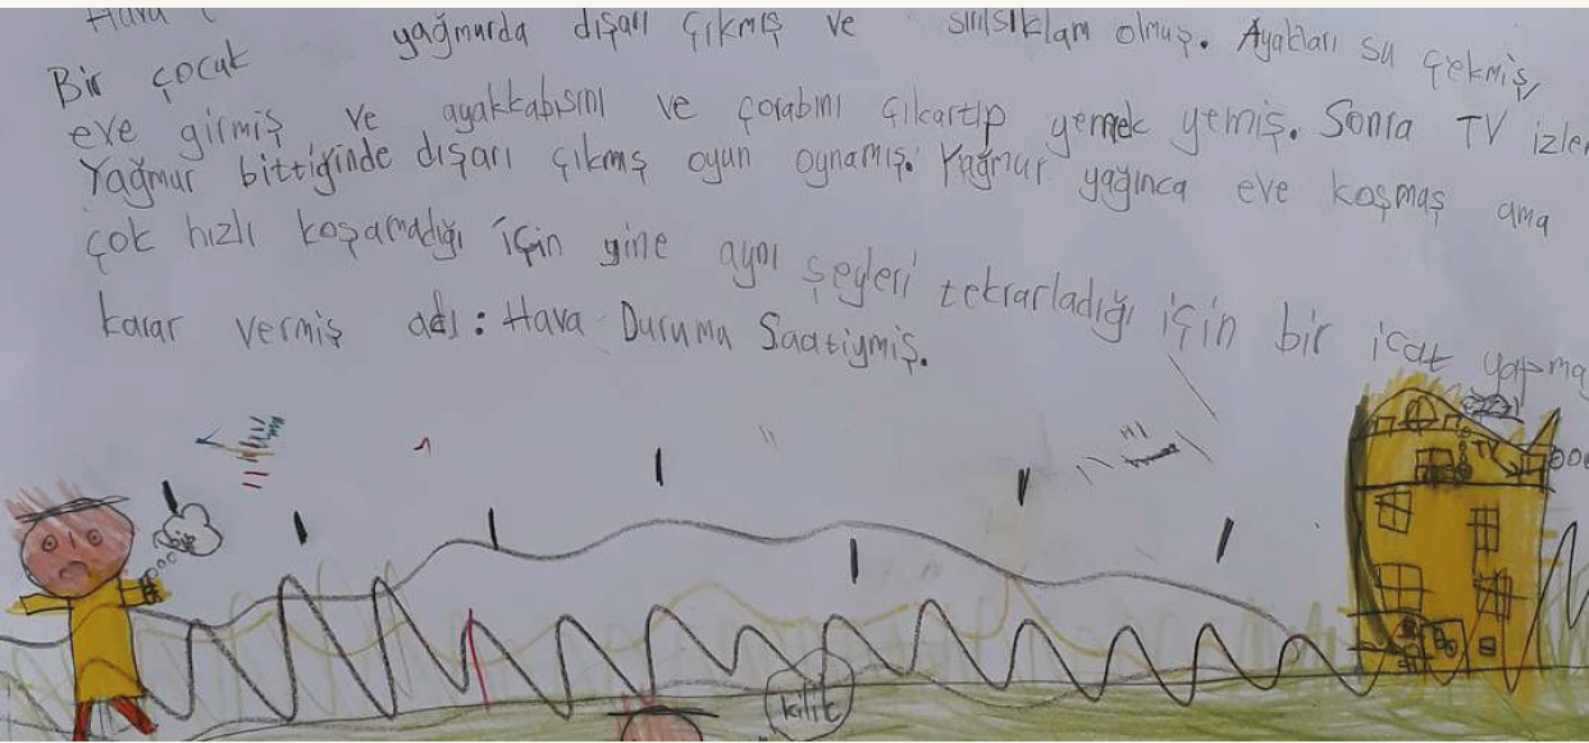 Hava
Bir çocuk yağmurda dışarı çıkmış ve sırılsıklam olmuş. Ayakları su çekmiş,
eve girmiş ve ayakkabısını ve çorabını çıkartıp yemek yemiş. Sonra TV izle
Yağmur bittiğinde dışarı çıkmş oyun oynamış. Yağmur yağınca eve koşmaş ama
çok hızlı koşamadığı için yine aynı şeyleri tekrarladığı için bir icat yapma
karar vermiş adı: Hava Duruma Saatiymiş.
bip
TV
kilit